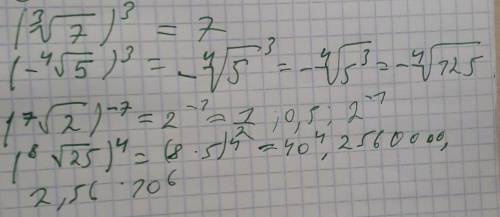 (∛7)³ = 7
(-⁴√5)³ = -⁴√5³ = -⁴√5³ = -⁴√125
(⁷√2)⁻⁷ = 2⁻¹ = 1/2 ; 0,5 ; 2⁻¹
(⁸√25)⁴ = (8·5)⁴ = 40⁴, 2560000,
2,56·10⁶